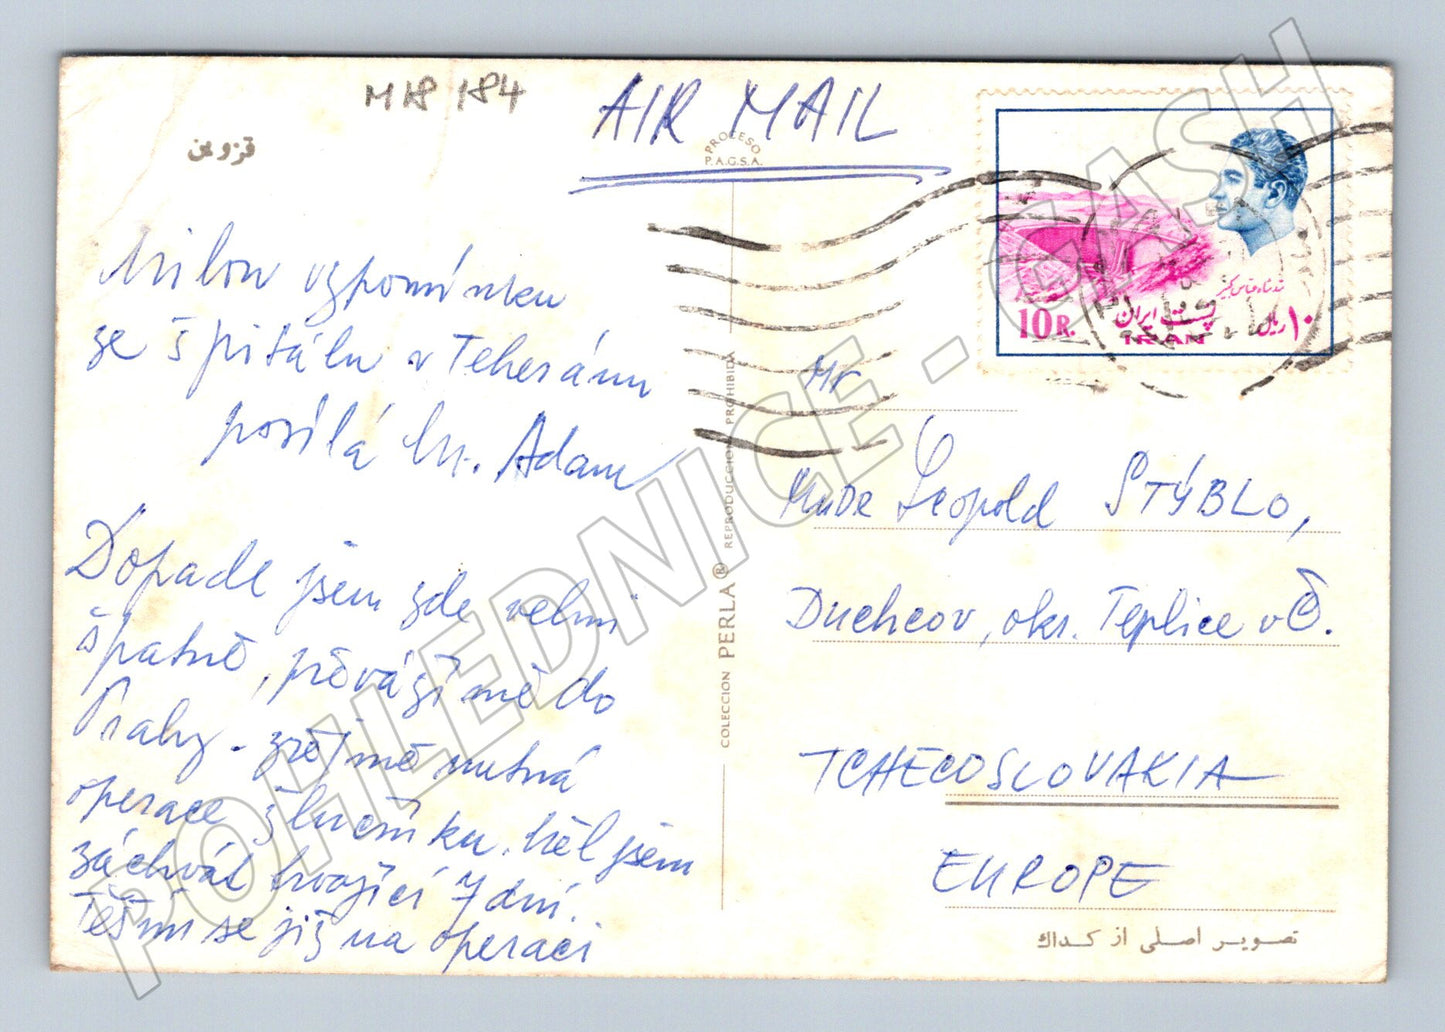 M18 184
AIR MAIL
قزوین
PROCESO
P.A.G.S.A.
Milou vzpomínku
ze špitálu v Teheránu
posílá M. Adam
Dopadl jsem zde velmi
špatně, převáží mě do
Prahy - zřejmě nutná
operace žlučníku. Měl jsem
záchvat trvající 7 dní.
Těším se již na operaci
COLECCION PERLA® REPRODUCCION PROHIBIDA
10 R.
پست ایران
۱۰ ریال
IRAN
Mr
MUDr Leopold STÝBLO,
Duchcov, okr. Teplice v Č.
TCHECOSLOVAKIA
EUROPE
تصویر اصلی از کداك
POHLEDNICE - CASH